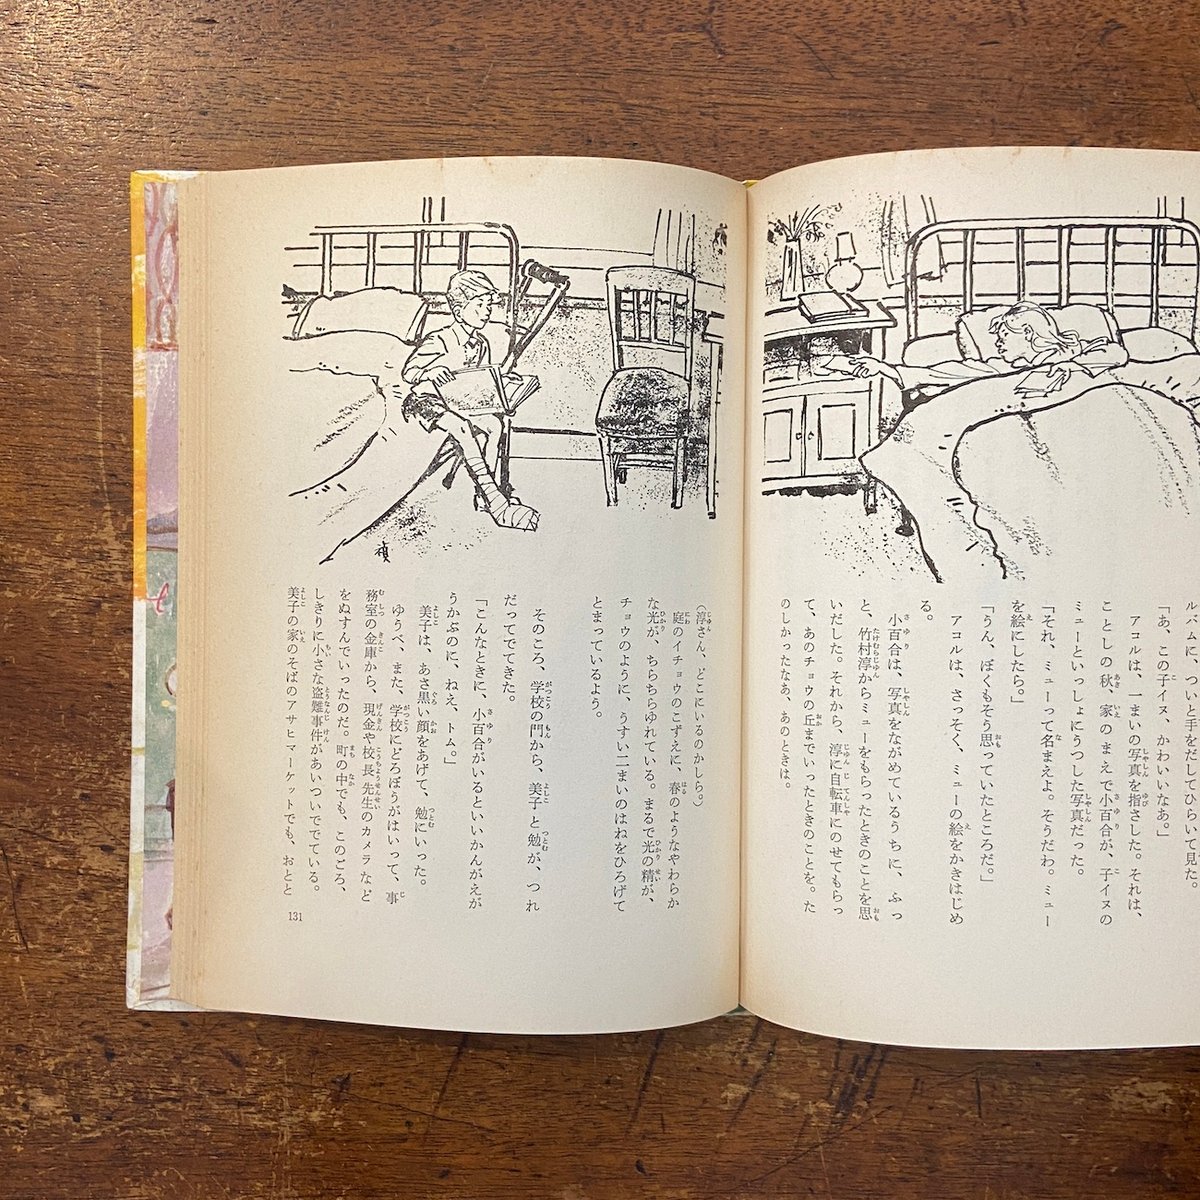 ルバムに、ついと手をだしてひらいて見た。
「あ、この子イヌ、かわいいなあ。」
アコルは、一まいの写真を指さした。それは、
ことしの秋、家のまえで小百合が、子イヌの
ミューといっしょにうつした写真だった。
「それ、ミューって名まえよ。そうだわ。ミュー
を絵にしたら。」
「うん、ぼくもそう思っていたところだ。」
アコルは、さっそく、ミューの絵をかきはじめ
る。
小百合は、写真をながめているうちに、ふっ
と、竹村淳からミューをもらったときのことを思
いだした。それから、淳に自転車にのせてもらっ
て、あのチョウの丘までいったときのことを。た
のしかったなあ、あのときは。
(淳さん、どこにいるのかしら。)
庭のイチョウのこずえに、春のようなやわらか
な光が、ちらちらゆれている。まるで光の精が、
チョウのように、うすい二まいのはねをひろげて
とまっているよう。
そのころ、学校の門から、美子と勉が、つれ
だってでてきた。
「こんなときに、小百合がいるといいかんがえが
うかぶのに、ねえ、トム。」
美子は、あさ黒い顔をあげて、勉にいった。
ゆうべ、また、学校にどろぼうがはいって、事
務室の金庫から、現金や校長先生のカメラなど
をぬすんでいったのだ。町の中でも、このごろ、
しきりに小さな盗難事件があいついででている。
美子の家のそばのアサヒマーケットでも、おとと
131